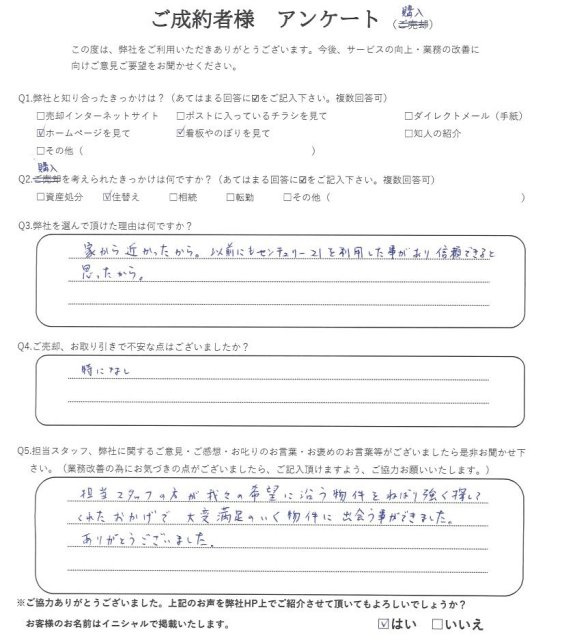 ご成約者様　アンケート（ご売却）
購入
この度は、弊社をご利用いただきありがとうございます。今後、サービスの向上・業務の改善に
向けご意見ご要望をお聞かせください。
Q1.弊社と知り合ったきっかけは？（あてはまる回答に☑をご記入下さい。複数回答可）
□売却インターネットサイト　□ポストに入っているチラシを見て　□ダイレクトメール（手紙）
☑ホームページを見て　☑看板やのぼりを見て　□知人の紹介
□その他（　　　）
購入
Q2.ご売却を考えられたきっかけは何ですか？（あてはまる回答に☑をご記入下さい。複数回答可）
□資産処分　☑住替え　□相続　□転勤　□その他（　　　）
Q3.弊社を選んで頂けた理由は何ですか？
家から近かったから。以前にもセンチュリー21を利用した事があり信頼できると
思ったから。
Q4.ご売却、お取り引きで不安な点はございましたか？
特になし
Q5.担当スタッフ、弊社に関するご意見・ご感想・お叱りのお言葉・お褒めのお言葉等がございましたら是非お聞かせ下
さい。（業務改善の為にお気づきの点がございましたら、ご記入頂けますよう、ご協力お願いいたします。）
担当スタッフの方が我々の希望に沿う物件をねばり強く探して
くれたおかげで大変満足のいく物件に出会う事ができました。
ありがとうございました。
※ご協力ありがとうございました。上記のお声を弊社HP上でご紹介させて頂いてもよろしいでしょうか？
お客様のお名前はイニシャルで掲載いたします。　☑はい　□いいえ